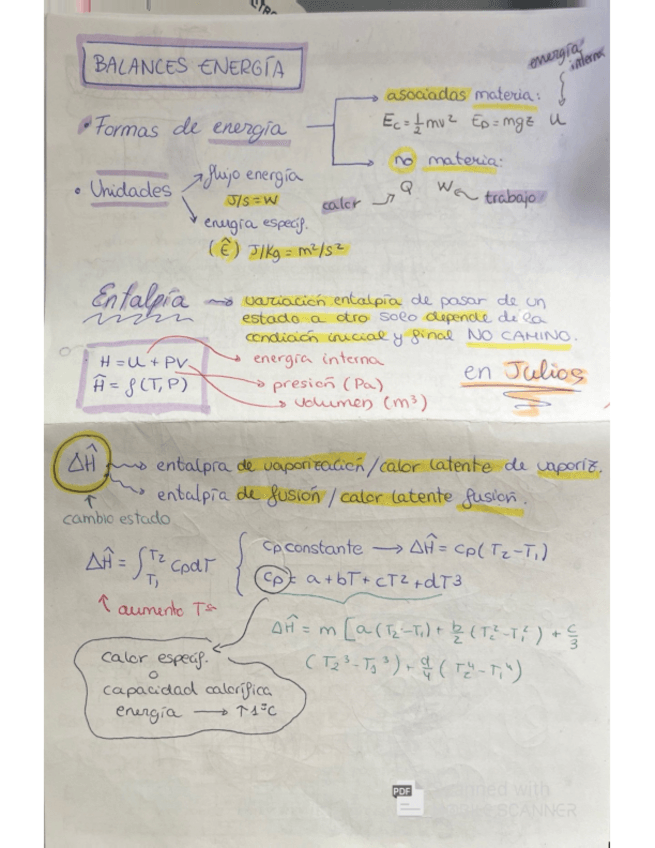 BALANCES ENERGÍA
energía interna
• Formas de energía
asociadas materia:
Ec = ½mv² Ep = mgz U
no materia:
calor Q W trabajo
• Unidades
flujo energía
J/s = W
energía específ.
(Ê) J/Kg = m²/s²
Entalpía → variación entalpía de pasar de un
estado a otro solo depende de la
condición inicial y final NO CAMINO.
H = U + PV
Ĥ = f(T, P)
energía interna
presión (Pa)
volumen (m³)
en Julios
ΔĤ → entalpía de vaporización/calor latente de vaporiz.
→ entalpía de fusión / calor latente fusión.
↑
cambio estado
ΔĤ = ∫T1T2 cpdT
↑ aumento Tª
cp constante → ΔĤ = cp(T2-T1)
cp = a + bT + cT² + dT³
ΔĤ = m [a(T2-T1) + b/2 (T2²-T1²) + c/3
(T2³-T1³) + d/4 (T2⁴-T1⁴)
calor específ.
o
capacidad calorífica
energía → ↑1ºC
PDF
Scanned with
SCANNER